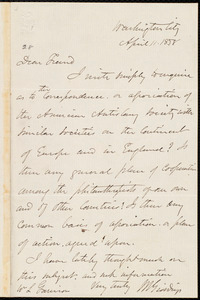 Washington City
April 11. 1838
Dear Friend
I write simply to enquire
as to the correspondence or association of
the American Antislavery Society with
similar societies on the continent
of Europe and in England? Is
there any general plan of cooperation
among the philanthropists of our own
and of other Countries? Is there any
Common basis of association or plan
of action agreed upon.
I have lately thought much on
this subject, and ask information
Very truly
W L Garrison J R Giddings